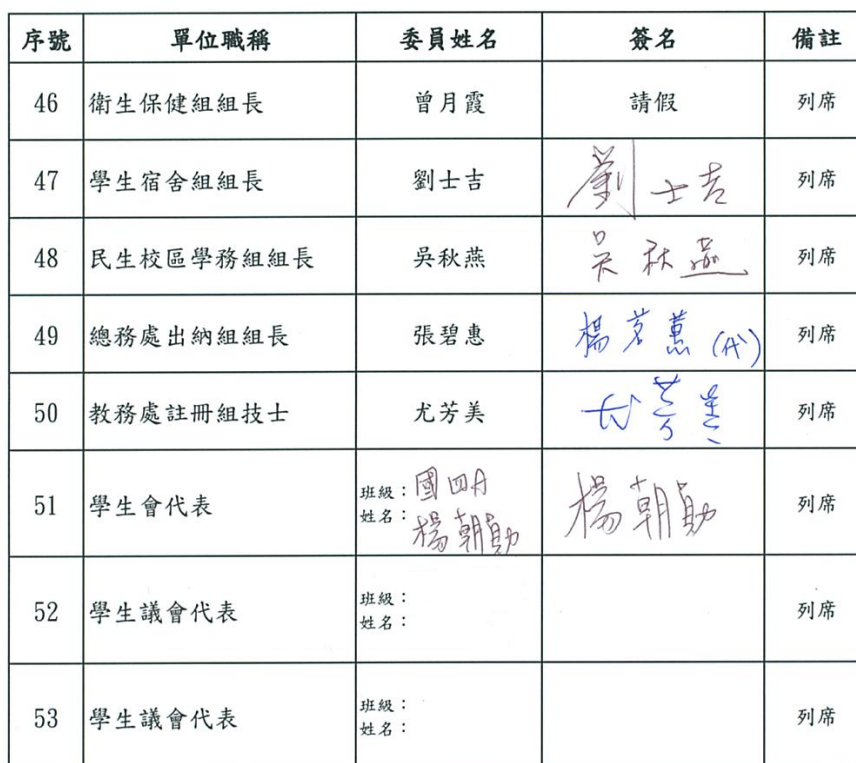 序號 單位職稱 委員姓名 簽名 備註
46 衛生保健組組長 曾月霞 請假 列席
47 學生宿舍組組長 劉士吉 劉士吉 列席
48 民生校區學務組組長 吳秋燕 吳秋燕 列席
49 總務處出納組組長 張碧惠 楊茗蕙(代) 列席
50 教務處註冊組技士 尤芳美 尤芳美 列席
51 學生會代表 班級：國四A 姓名：楊朝勛 楊朝勛 列席
52 學生議會代表 班級： 姓名： 列席
53 學生議會代表 班級： 姓名： 列席